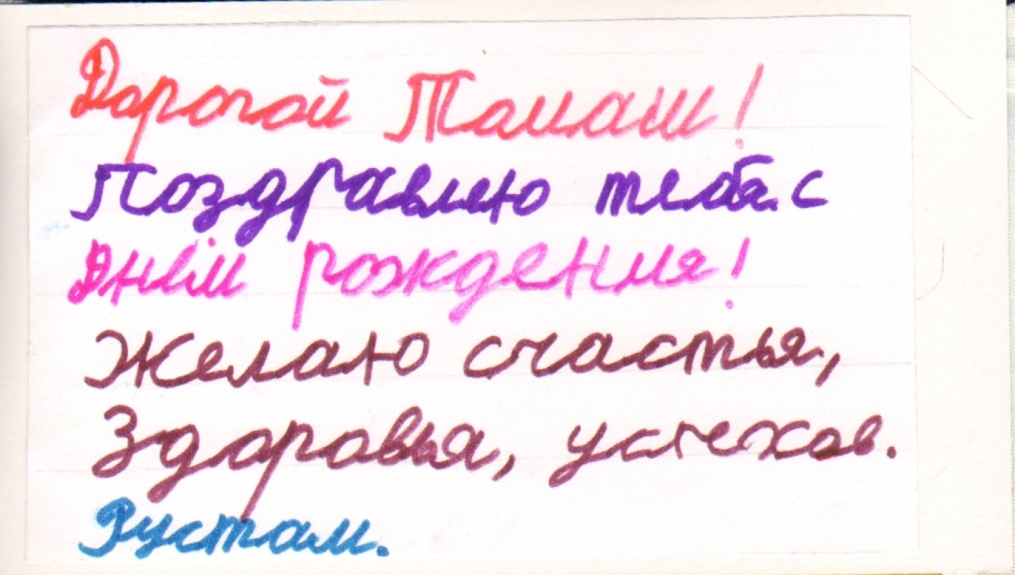 Дорогой Томаш!
Поздравлею тебя с
Днём рождения!
Желаю счастья,
Здоровья, успехов.
Рустам.